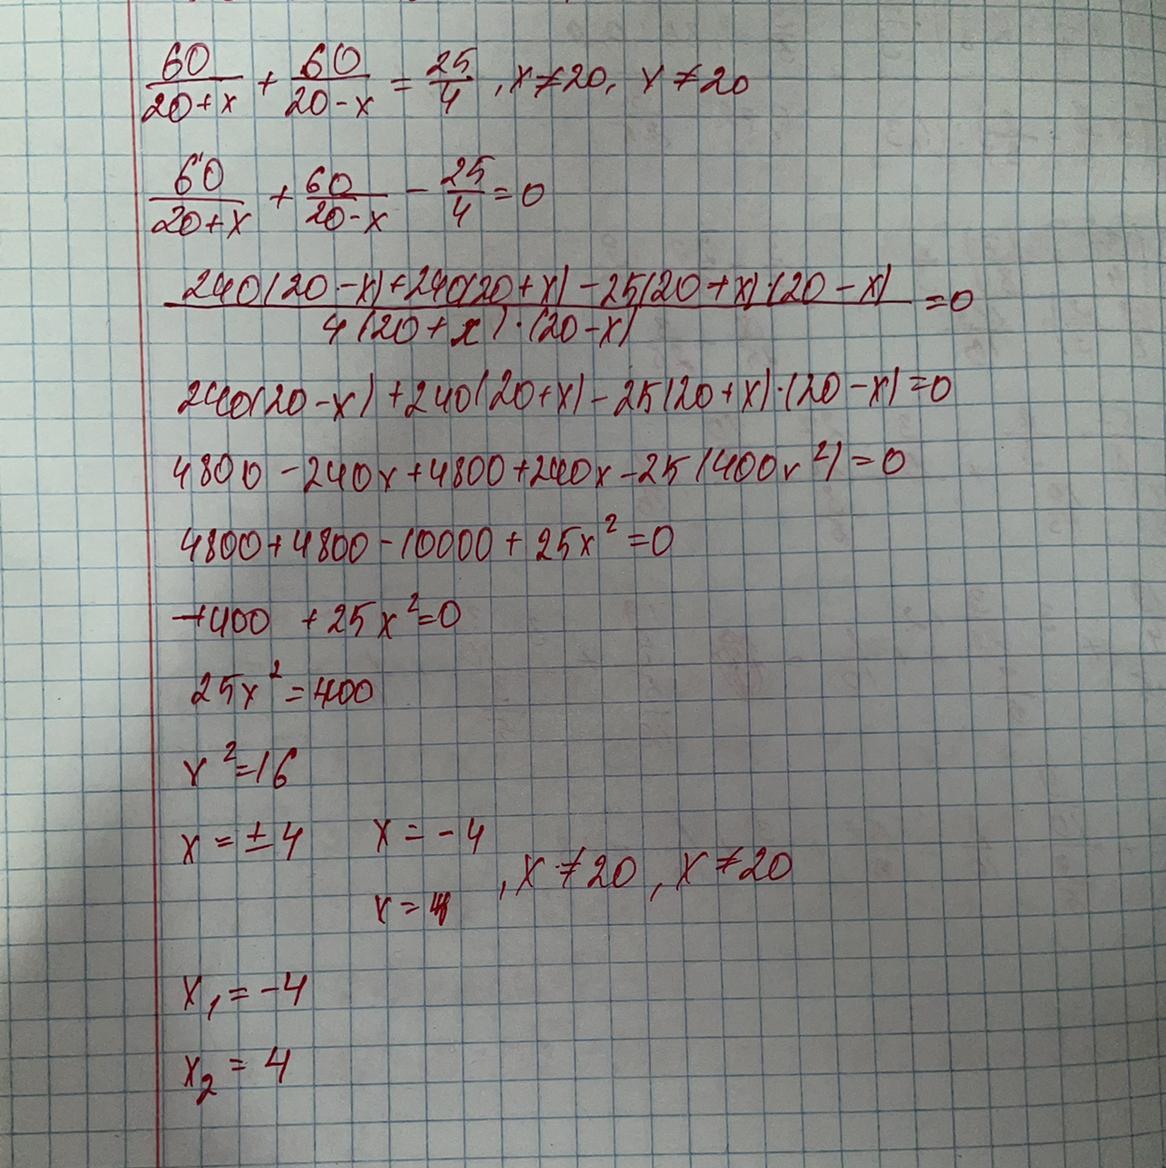 60/(20+x) + 60/(20-x) = 25/4, x≠20, x≠20
60/(20+x) + 60/(20-x) - 25/4 = 0
(240(20-x)+240(20+x)-25(20+x)·(20-x))/(4(20+x)·(20-x)) = 0
240(20-x)+240(20+x)-25(20+x)·(20-x)=0
4800-240x+4800+240x-25(400x²)=0
4800+4800-10000+25x²=0
-400 +25x²=0
25x²=400
x²=16
x=±4 x=-4
x=4 , x≠20, x≠20
x₁=-4
x₂=4